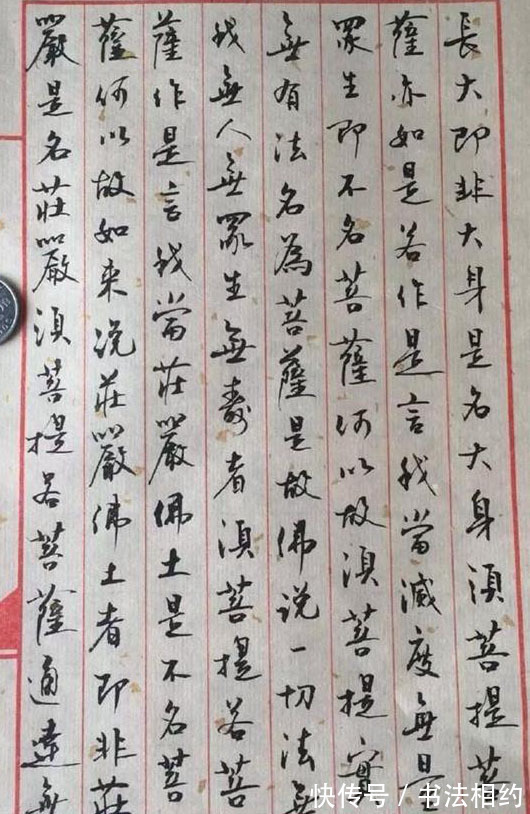 長大即非大身是名大身須菩提菩
薩亦如是若作是言我當滅度無量
眾生即不名菩薩何以故須菩提實
無有法名為菩薩是故佛说一切法無
我無人無眾生無壽者須菩提若菩
薩作是言我當莊嚴佛土是不名菩
薩何以故如来说莊嚴佛土者即非莊
嚴是名莊嚴須菩提若菩薩通達無
快传号 / 书法相约